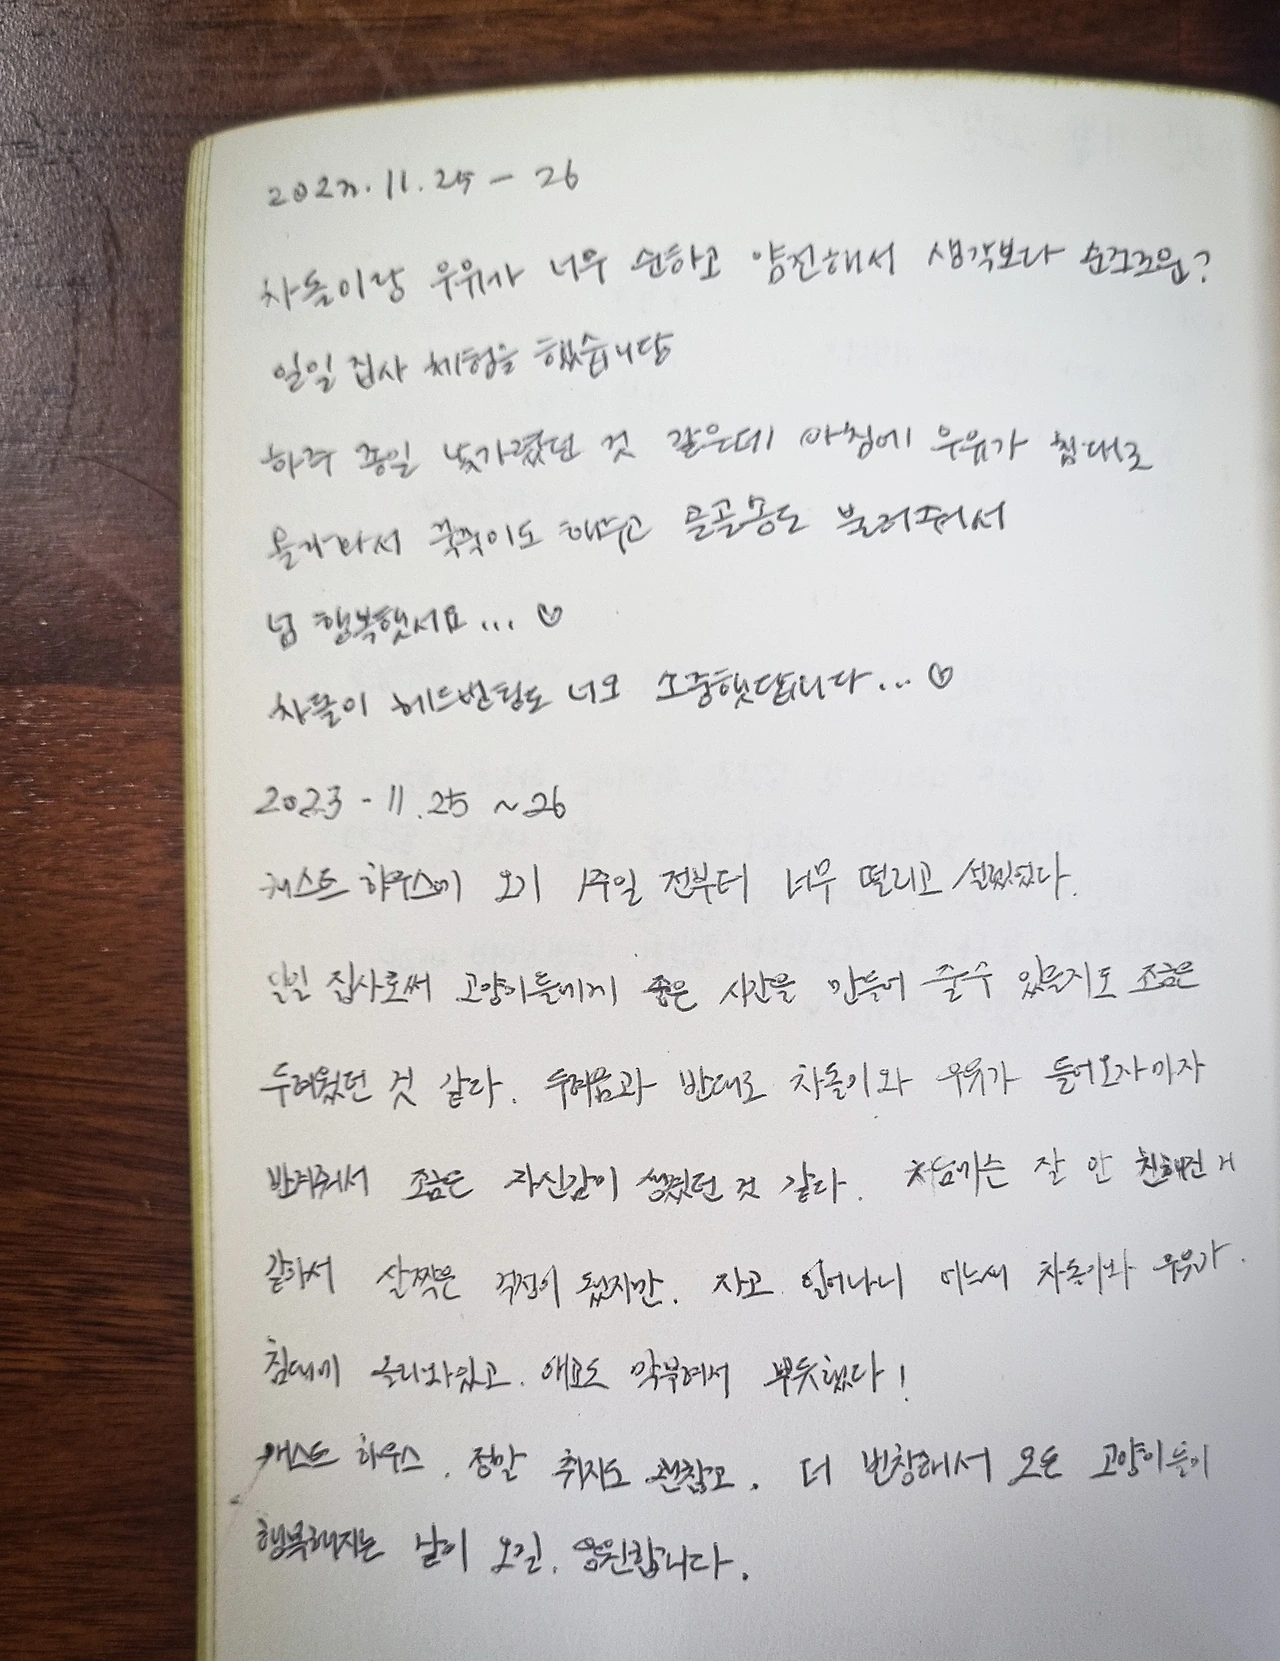 2023. 11. 25 - 26
차돌이랑 우유가 너무 순하고 얌전해서 생각보다 순조로운?
일일 집사 체험을 했습니담
하루 종일 낯가렸던 것 같은데 아침에 우유가 침대로
올라와서 꾹꾹이도 해주고 골골송도 불러줘서
넘 행복햇서요... ♡
차돌이 헤드번팅도 너모 소중햇답니다... ♡
2023 - 11. 25 ~ 26
캐스트 하우스에 오기 1주일 전부터 너무 떨리고 설렜었다.
일일 집사로써 고양이들에게 좋은 시간을 만들어 줄 수 있을지도 조금은
두려웠던 것 같다. 두려움과 반대로 차돌이와 우유가 들어오자마자
반겨줘서 조금은 자신감이 생겼던 것 같다. 처음에는 잘 안 친해진 거
같아서 살짝은 걱정이 됐지만. 자고 일어나니 어느새 차돌이와 우유가.
침대에 올라와있고. 애교도 막부려서 뿌듯했다!
캐스트 하우스. 정말 취지도 괜찮고. 더 번창해서 모든 고양이들이
행복해지는 날이 오길. 응원합니다.